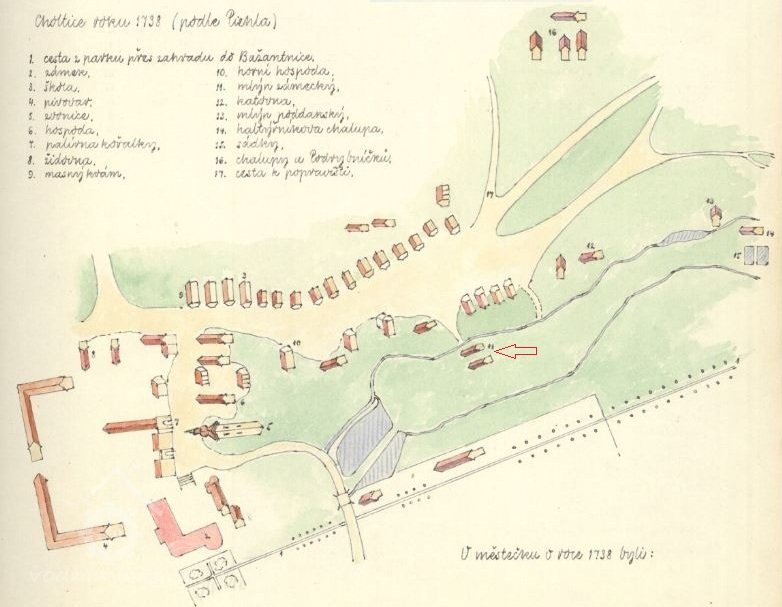 Choltice roku 1738 (podle Piehla)
1. cesta z parku přes zahradu do Bažantnice,
2. zámek,
3. škola,
4. pivovar,
5. zvonice,
6. hospoda,
7. palírna kořalky,
8. židovna,
9. masný krám,
10. horní hospoda,
11. mlýn zámecký,
12. katovna,
13. mlýn poddanský,
14. haltýrníkova chalupa,
15. sádky,
16. chalupy u Podrybníčků,
17. cesta k popravišti,
16
17
13
14
15
12
3
9
10
11
8
6
7
5
4
2
1
1
V městečku v roce 1738 byli: